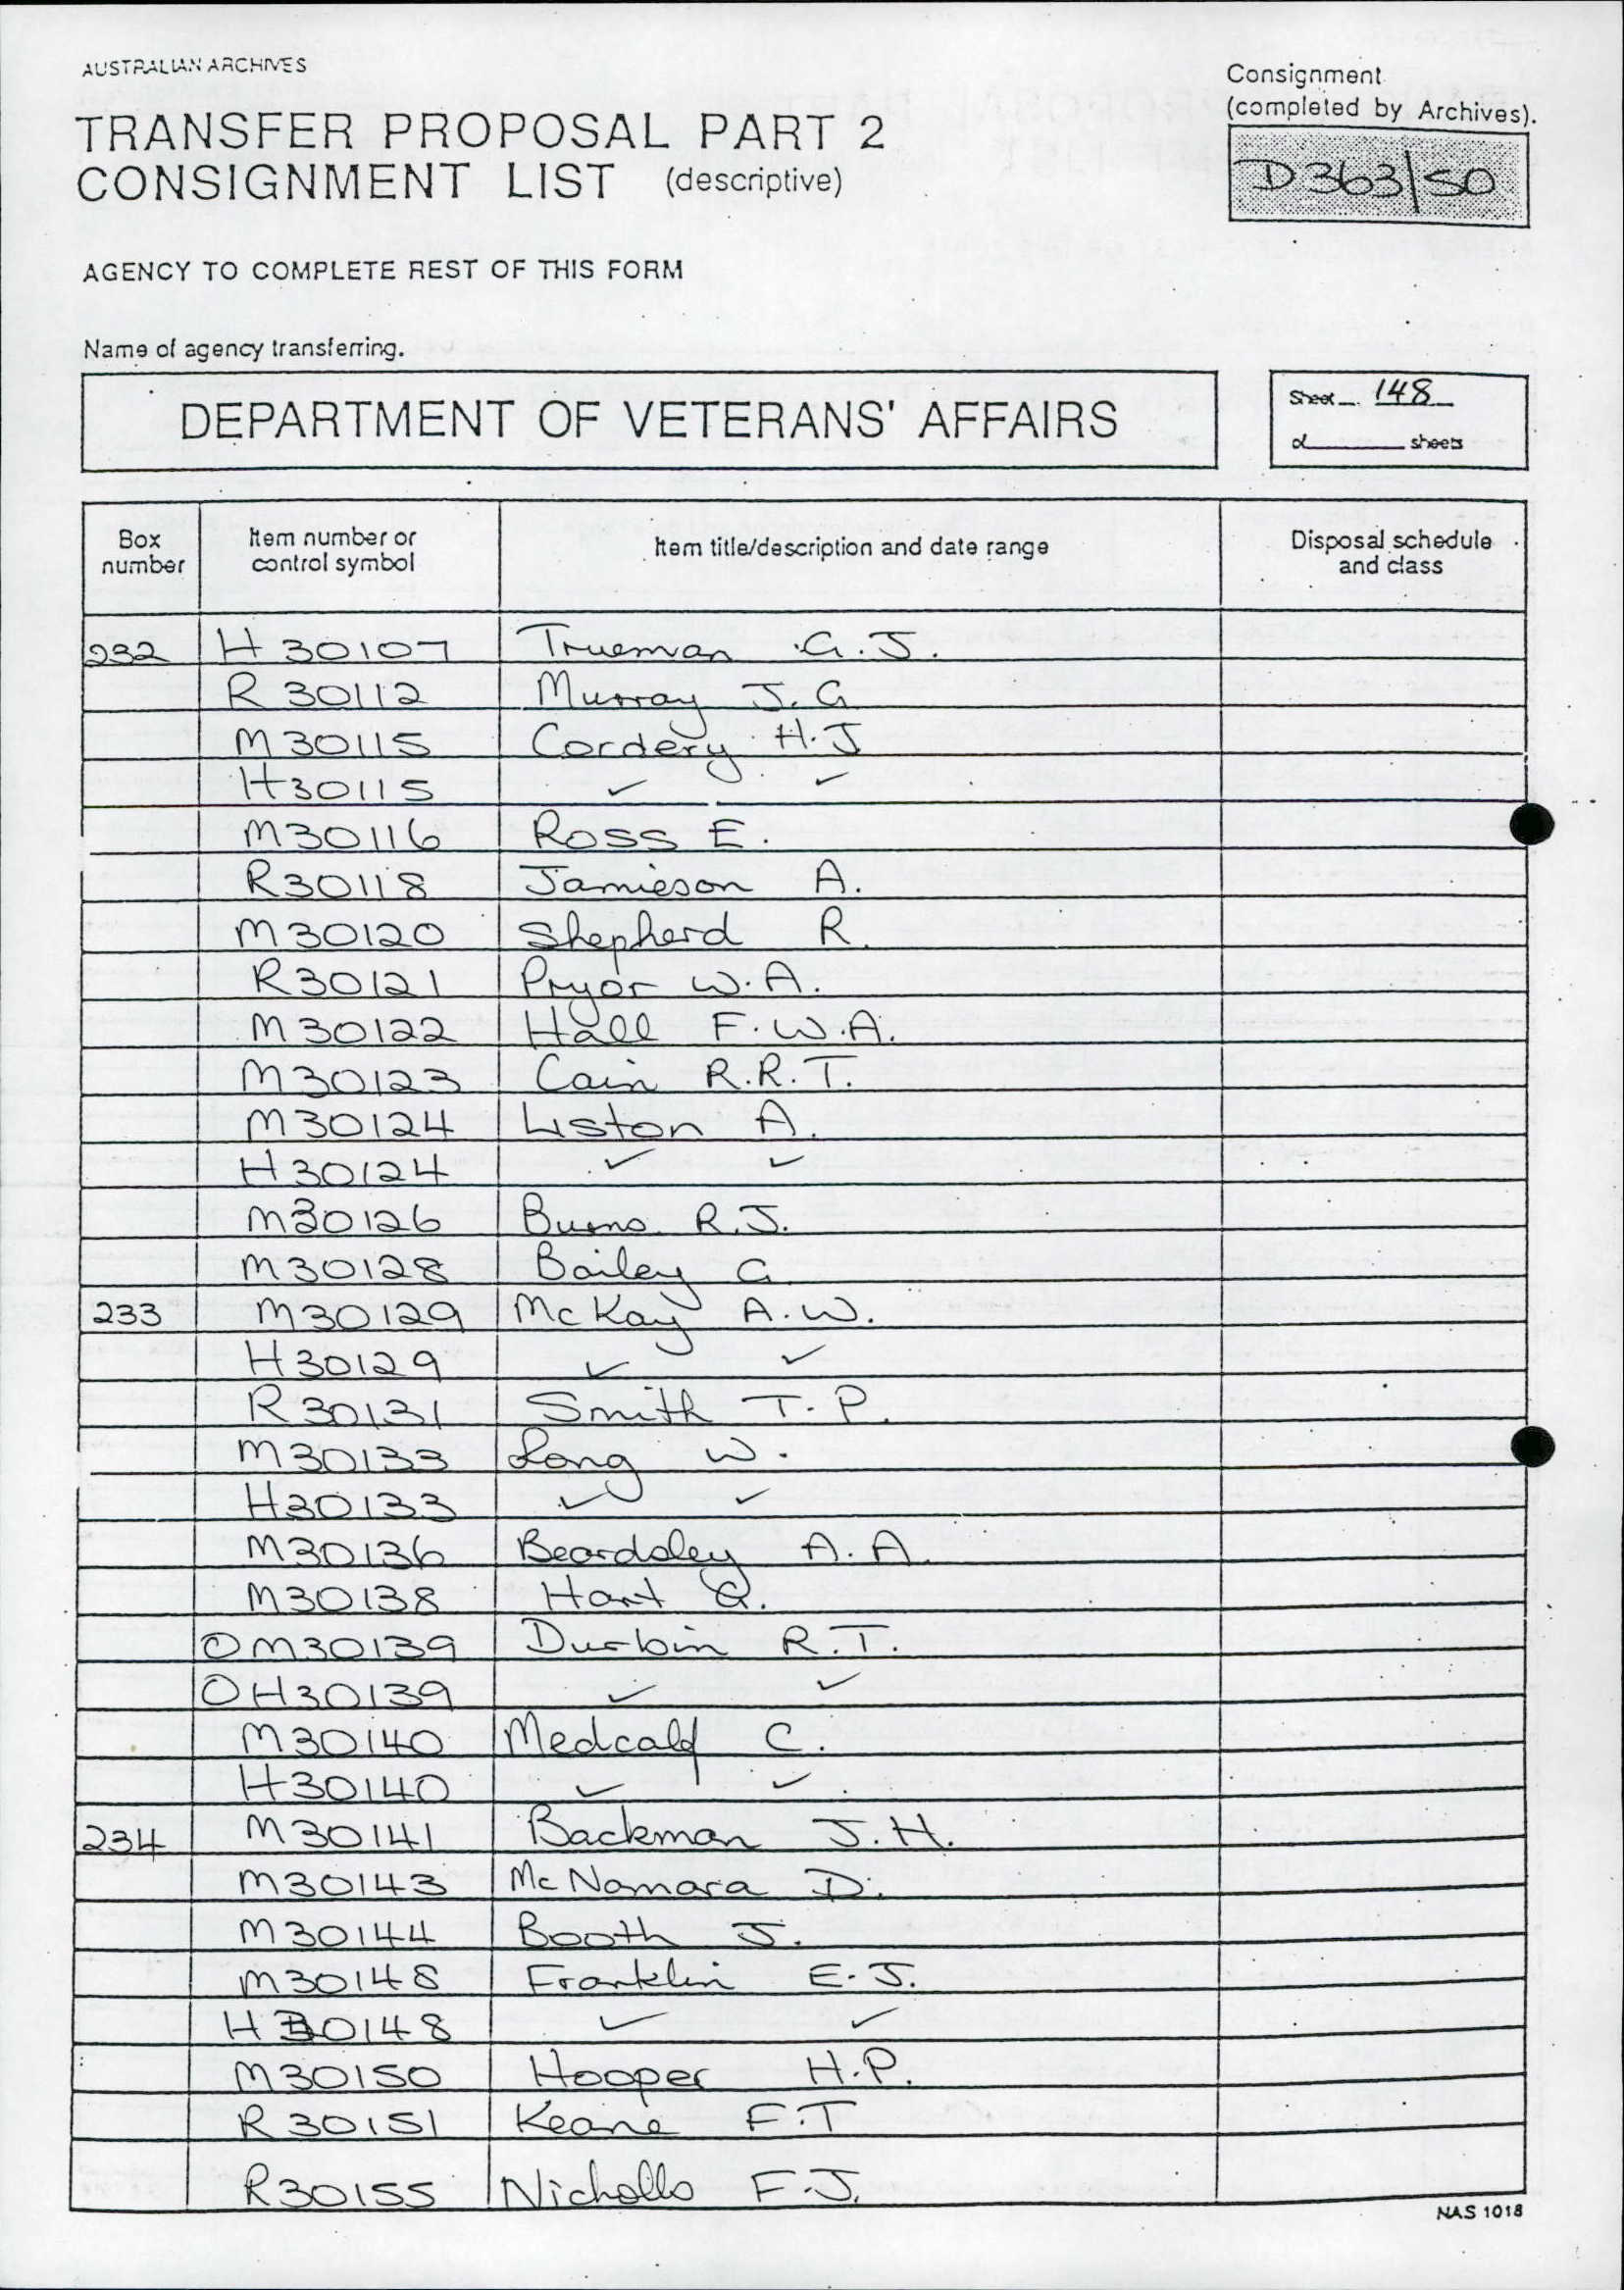 AUSTRALIAN ARCHIVES
TRANSFER PROPOSAL PART 2
CONSIGNMENT LIST (descriptive)
Consignment
(completed by Archives).
D363/50
AGENCY TO COMPLETE REST OF THIS FORM
Name of agency transferring.
DEPARTMENT OF VETERANS' AFFAIRS
Sheet 148
of sheets
Box number Item number or control symbol Item title/description and date range Disposal schedule and class
232 H30107 Trueman G.J.
R30112 Murray J.G
M30115 Cordery H.J
H30115 ✓ ✓
M30116 Ross E.
R30118 Jamieson A.
M30120 Shepherd R.
R30121 Pryor W.A.
M30122 Hall F.W.A.
M30123 Cain R.R.T.
M30124 Liston A.
H30124 ✓ ✓
M30126 Burns R.J.
M30128 Bailey G
233 M30129 McKay A.W.
H30129 ✓ ✓
R30131 Smith T.P.
M30133 Long W.
H30133 ✓ ✓
M30136 Beardsley A.A.
M30138 Hart G.
OM30139 Durbin R.T.
OH30139 ✓ ✓
M30140 Medcalf C.
H30140 ✓ ✓
234 M30141 Backman J.H.
M30143 McNamara D.
M30144 Booth J.
M30148 Franklin E.J.
H30148 ✓ ✓
M30150 Hooper H.P.
R30151 Keane F.T
R30155 Nicholls F.J.
NAS 1018